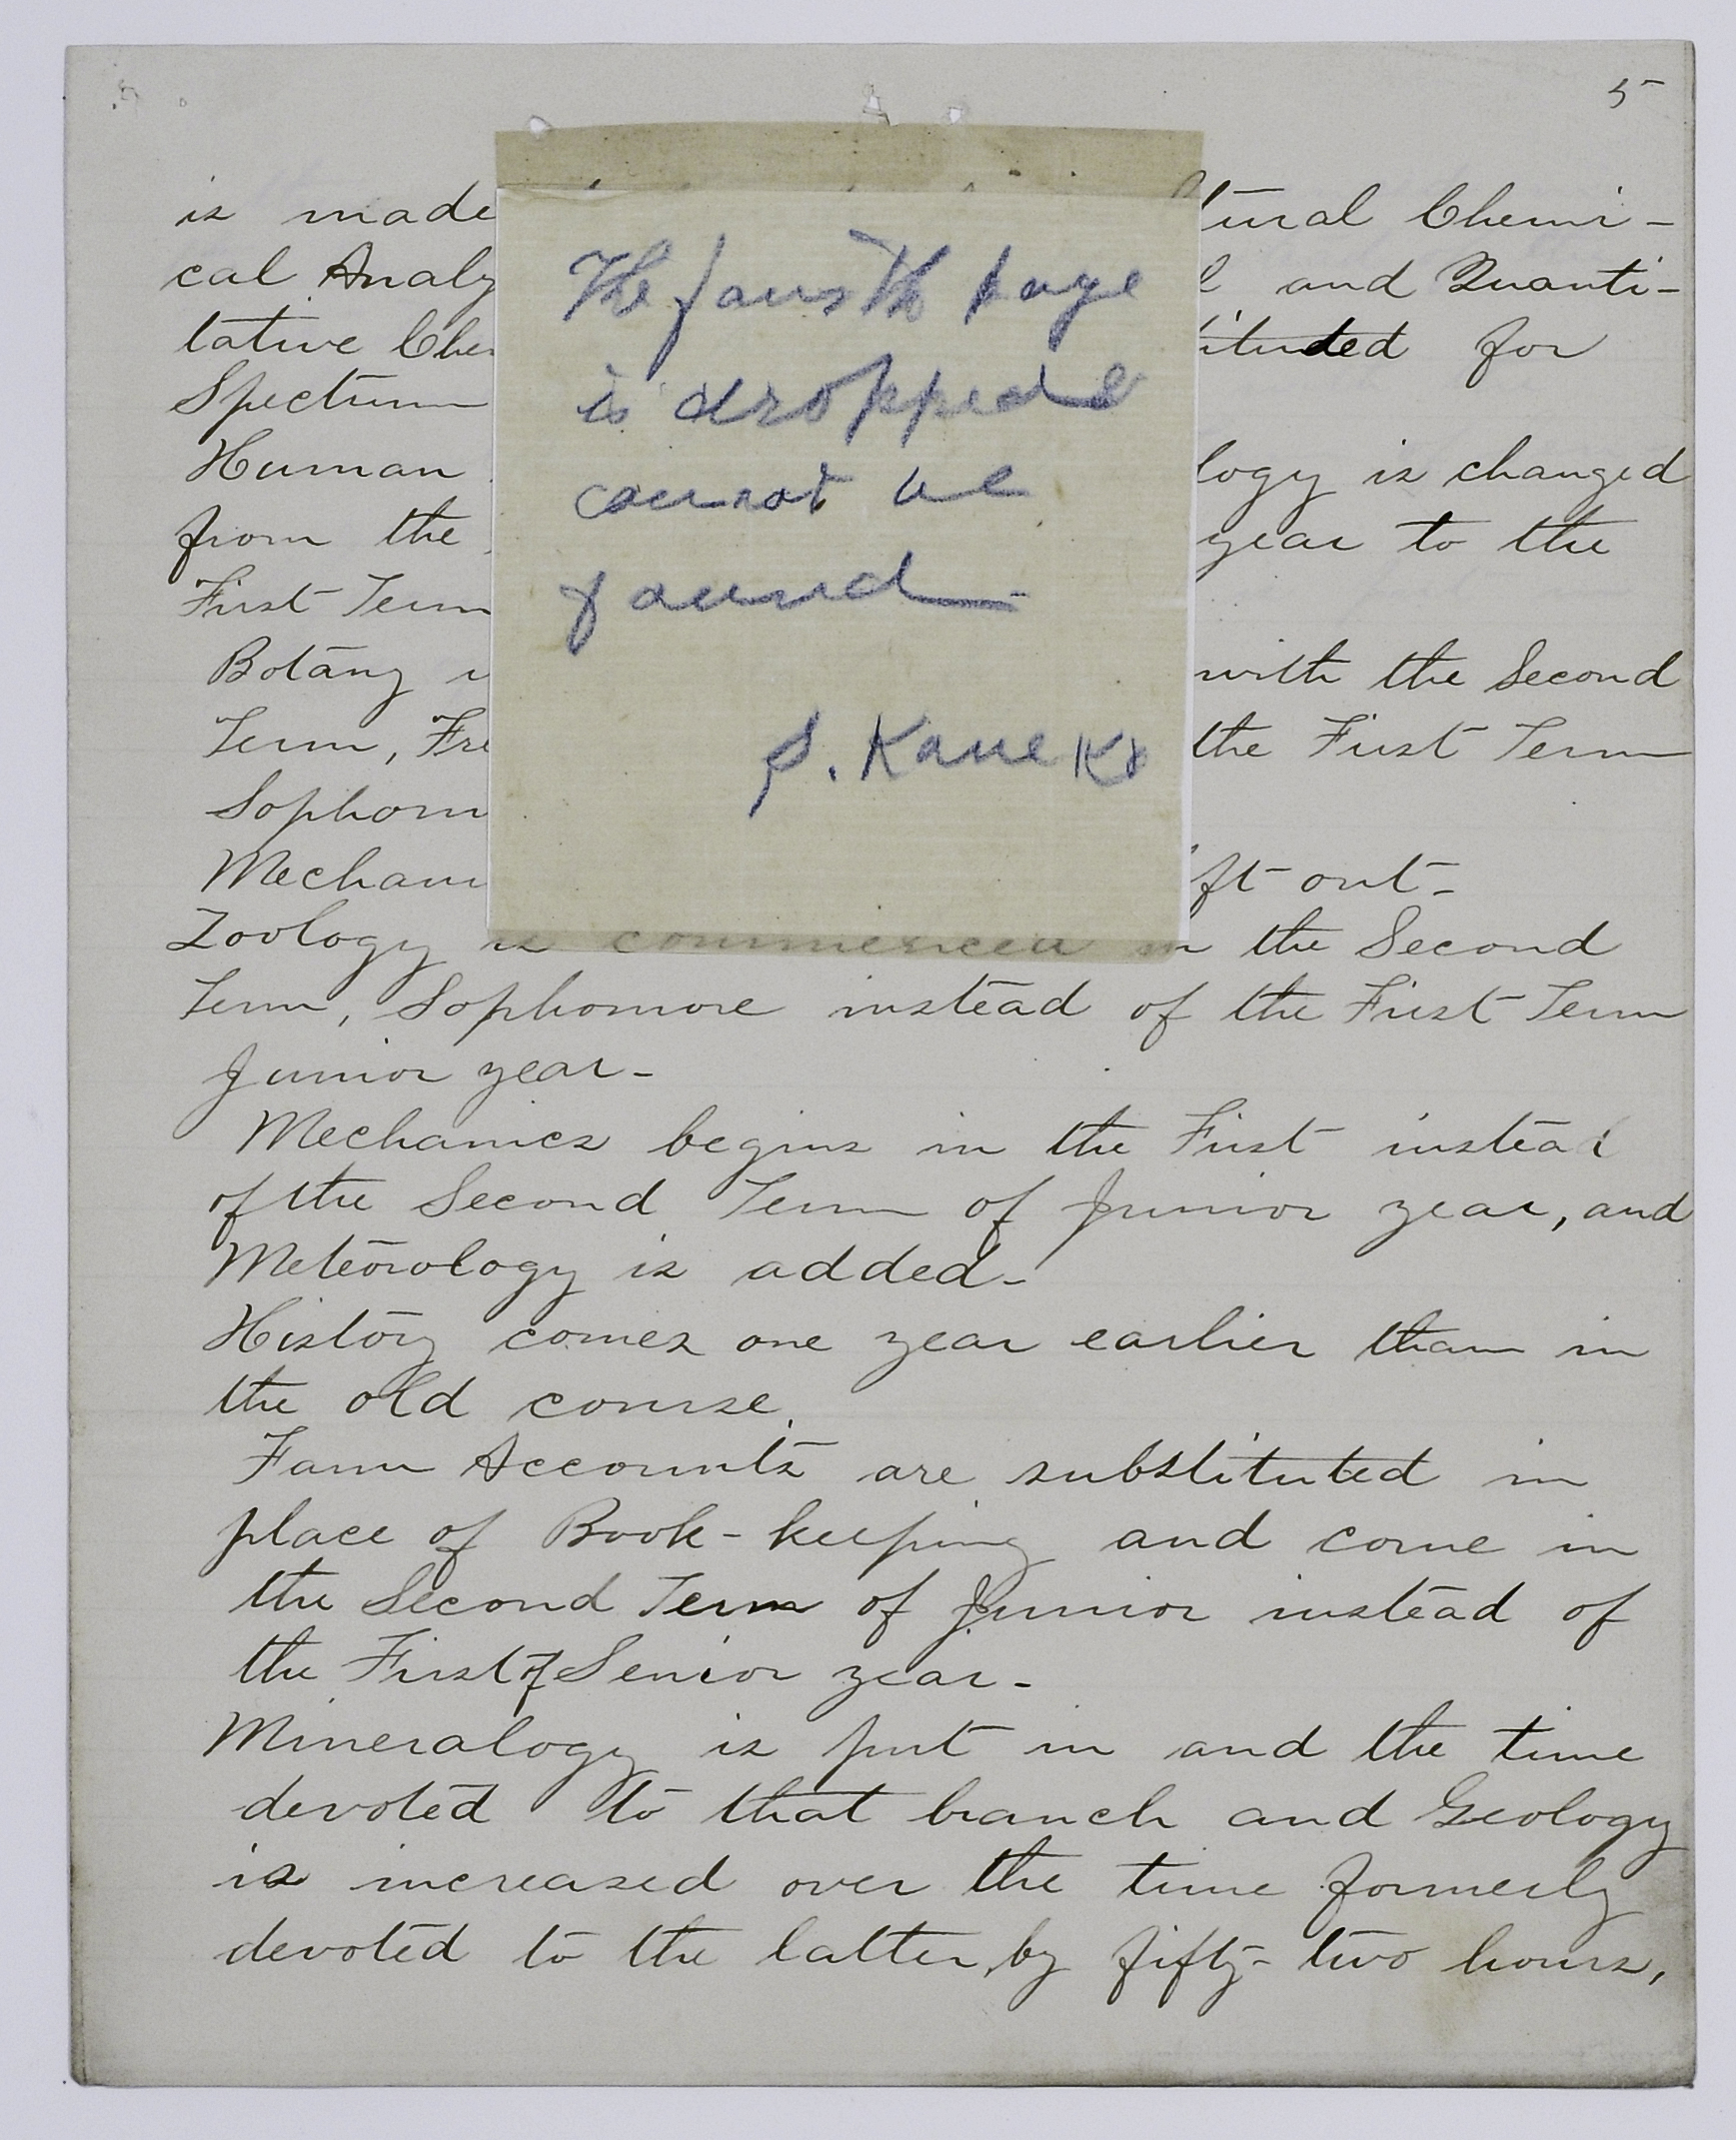 5
is made
tural Chemi-
cal Analy
and Quanti-
tative Che
ituted for
Spectrum
Human
logy is changed
from the
year to the
First Term
Botany
with the Second
Term, Fre
the First Term
Sophom
Mechani
ft out-
The fourth page
is dropped &
cannot be
found
S. Kaneko
Zoology is commenced in the Second
Term, Sophomore instead of the First Term
Junior year-
Mechanics begins in the First instead
of the Second Term of Junior year, and
Meteorology is added-
History comes one year earlier than in
the old course.
Farm Accounts are substituted in
place of Book-keeping and come in
the Second Term of Junior instead of
the First of Senior year-
Mineralogy is put in and the time
devoted to that branch and Geology
is increased over the time formerly
devoted to the latter, by fifty-two hours,